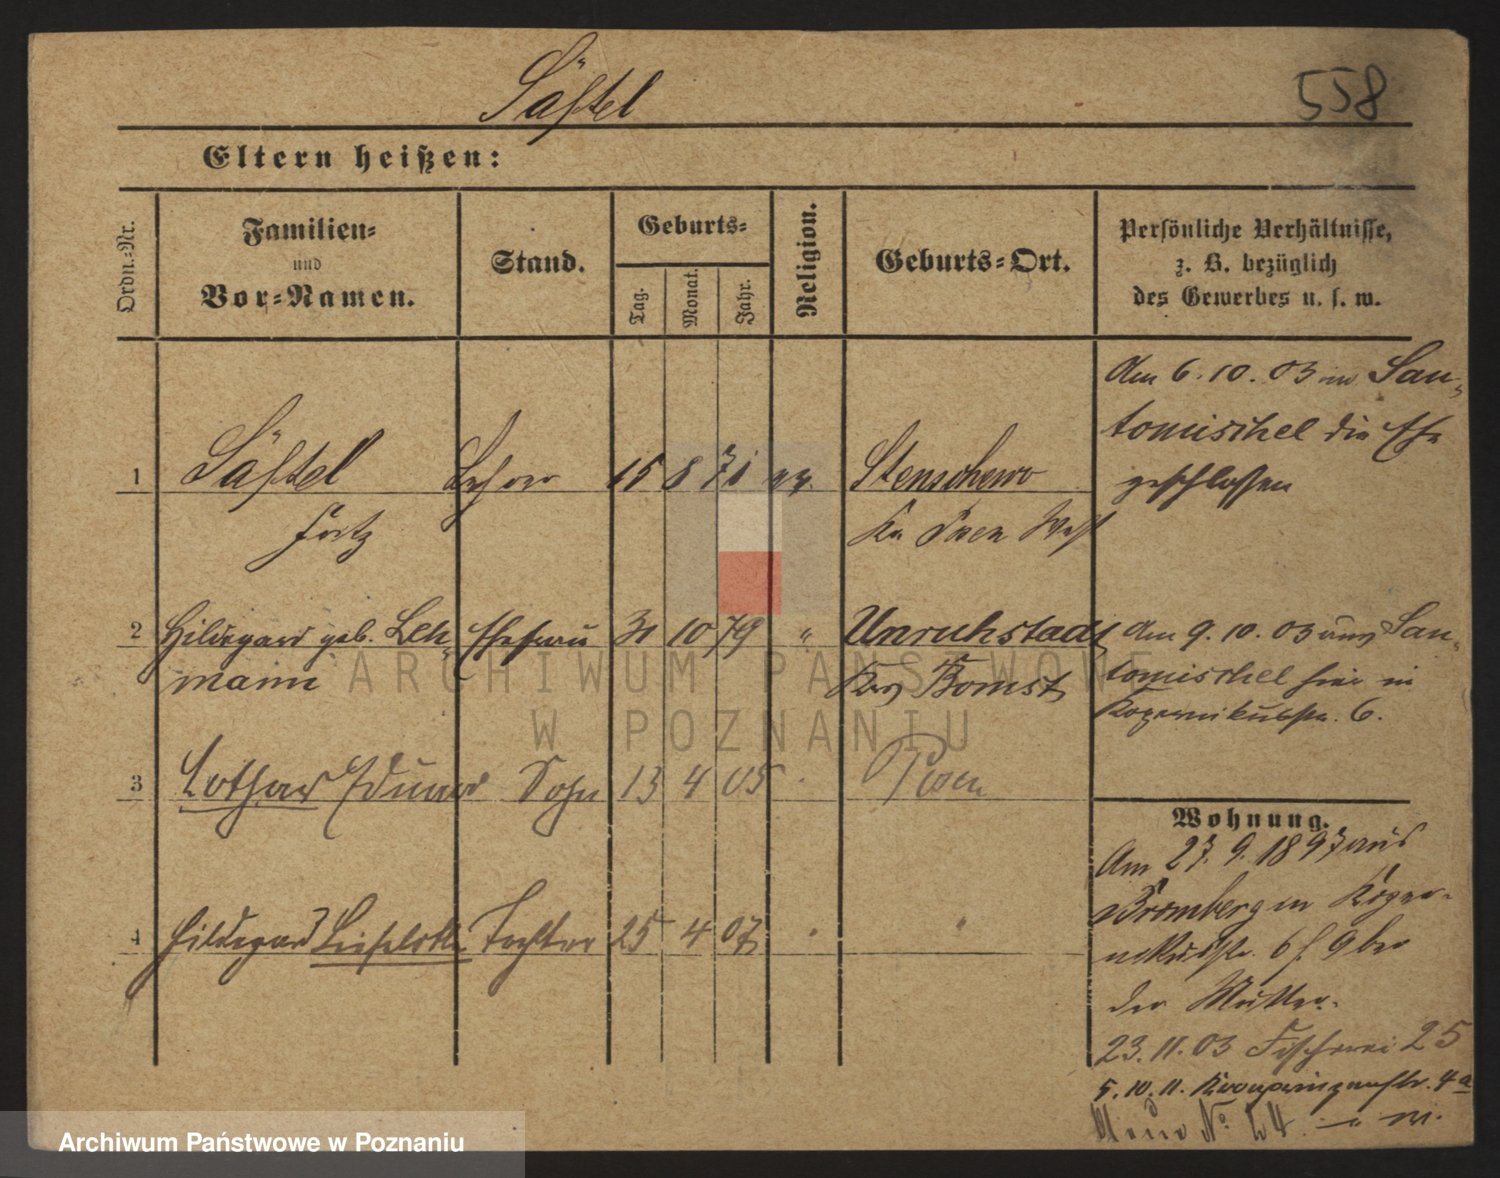 Säftel
558
Eltern heißen:
Ordn.-Nr.
Familien-
und
Vor-Namen.
Stand.
Geburts-
Tag.
Monat.
Jahr.
Religion.
Geburts-Ort.
Persönliche Verhältnisse,
z. B. bezüglich
des Gewerbes u. s. w.
Am 6.10.03 in San-
tomischel die Ehe
geschlossen
1 Säftel Lehrer 15 8 71 ev. Stenschewo
Fritz Kr. Posen West
2 Hildegard geb. Leh- Ehefrau 31 10 79 " Unruhstadt
mann Krs Bomst
Am 9.10.03 aus San-
tomischel hier in
Kopernikusstr. 6.
3 Lothar Eduard Sohn 13 4 05 Posen
4 Hildegard Liselotte Tochter 25 4 07 "
Wohnung.
Am 27.9.1897 aus
Bromberg in Koper-
nikusstr. 6 bei
der Mutter.
23.11.03 Fischerei 25
5.10.11. Kronprinzenstr. 4a
Neue No 54
ARCHIWUM PAŃSTWOWE
W POZNANIU
Archiwum Państwowe w Poznaniu